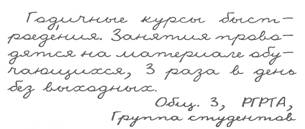 Годичные курсы быст-
роедения. Занятия прово-
дятся на материале обу-
чающихся, 3 раза в день
без выходных.
Общ. 3, РГРТА,
Группа студентов